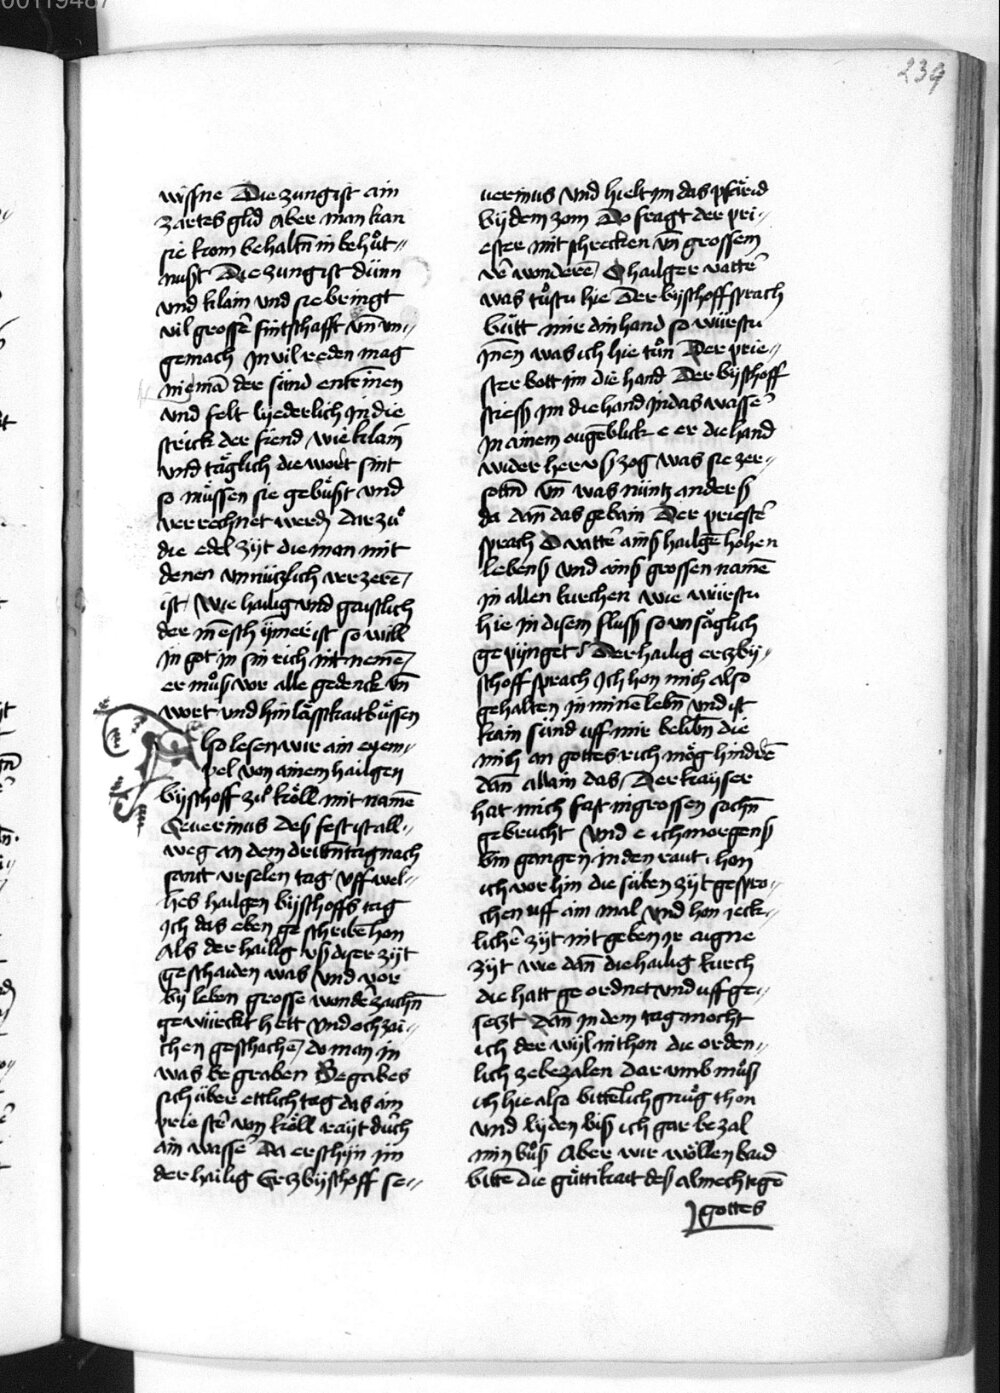 00119487
239
wissne Die zung ist ain
zartes glid Aber man kan
sie kom behaltn̄ in behuͦt-
nust Die zung ist dünn
vnd klain vnd sie bringt
vil grosser̄ fintschafft vn̄ vn-
gemach In vil reden mag
nieman̄ der sünd entrinen
vnd felt lyederlich In die
strick der fiend wie klain
vnd täglich die wort sint
so müssen sie gebüst vnd
verrechnet werdn̄ dar zuͦ
die edel zijt die man mit
denen vnnüczlich verzerē
ist / wie hailig vnd gaistlich
der mēsch ÿmer ist so will
in got in sin rich nit nemē
er muͦs vor alle gedenck vn̄
wort vnd hinlässikait büssen
Also lesen wir ain exem-
pel von ainem hailgen
byschoff zuͦ köll mit namē
Seuerinus Des fest ist all-
weg an dem dritn̄ tag nach
sant vrselen tag / vff wel-
hes hailgen byschoffs tag
Ich das eben geschribē hon
Als der hailig vs diser zijt
geschaiden was vnd vor
by leben grosse wonderzaichn̄
gewürckt hett vnd och zai-
chen geschachē / do man in
was begraben Begabes
sich über ettlich tag das ain
priester̄ von köll rayt durch
ain wasser̄ Da erschyn im
der hailig Erczbyschoff se-
uerinus vnd hielt im das pfärid
by dem zom Do fragt der pri-
ester mit schrecken vn̄ grossem
ver wonderē O hailger vatter̄
was tuͦstu hie Der byschoff sprach
bütt mir din hand so würstu
Inen was ich hie tuͦn Der prie-
ster bott im die hand Der byschoff
sties im die hand In das wasser̄
In ainem ougēblick e er die hand
wider her vs zog was sie zer-
sottn̄ vn̄ was nüntz anders
da dan̄ das gebain Der priester̄
sprach O vatter̄ ains hailgē hohen
lebens vnd ains grossen namē
in allen kirchen wie würstu
hie in disem fluss so vnsäglich
gepynget Der hailig erczby-
schoff sprach Ich hon mich also
gehalten in minē lebn̄ vnd ist
kain sünd vff mir belibn̄ die
mich an gottes rich mög hindrē
dan̄ allain das / Der kayser
hat mich fast in grossen sachn̄
gebrucht vnd e ich morgens
bin gangen in den raut / hon
ich vor hin die siben zijt gespro-
chen vff ain mal vnd hon ieck-
lichē zijt nit geben ir aigne
zijt wie dan̄ die hailig kirch
die hatt geordnet vnd vff ge-
seczt dan̄ in dem tag mocht
ich der wijl nit hon die orden-
lich zebezalen Dar vmb muͦs
ich hie also bitterlich gnuͦg thon
vnd lyden bis ich gar bezal
min buͦs Aber wir wöllen baid
bittē die güttikait des almechtigē
gottes